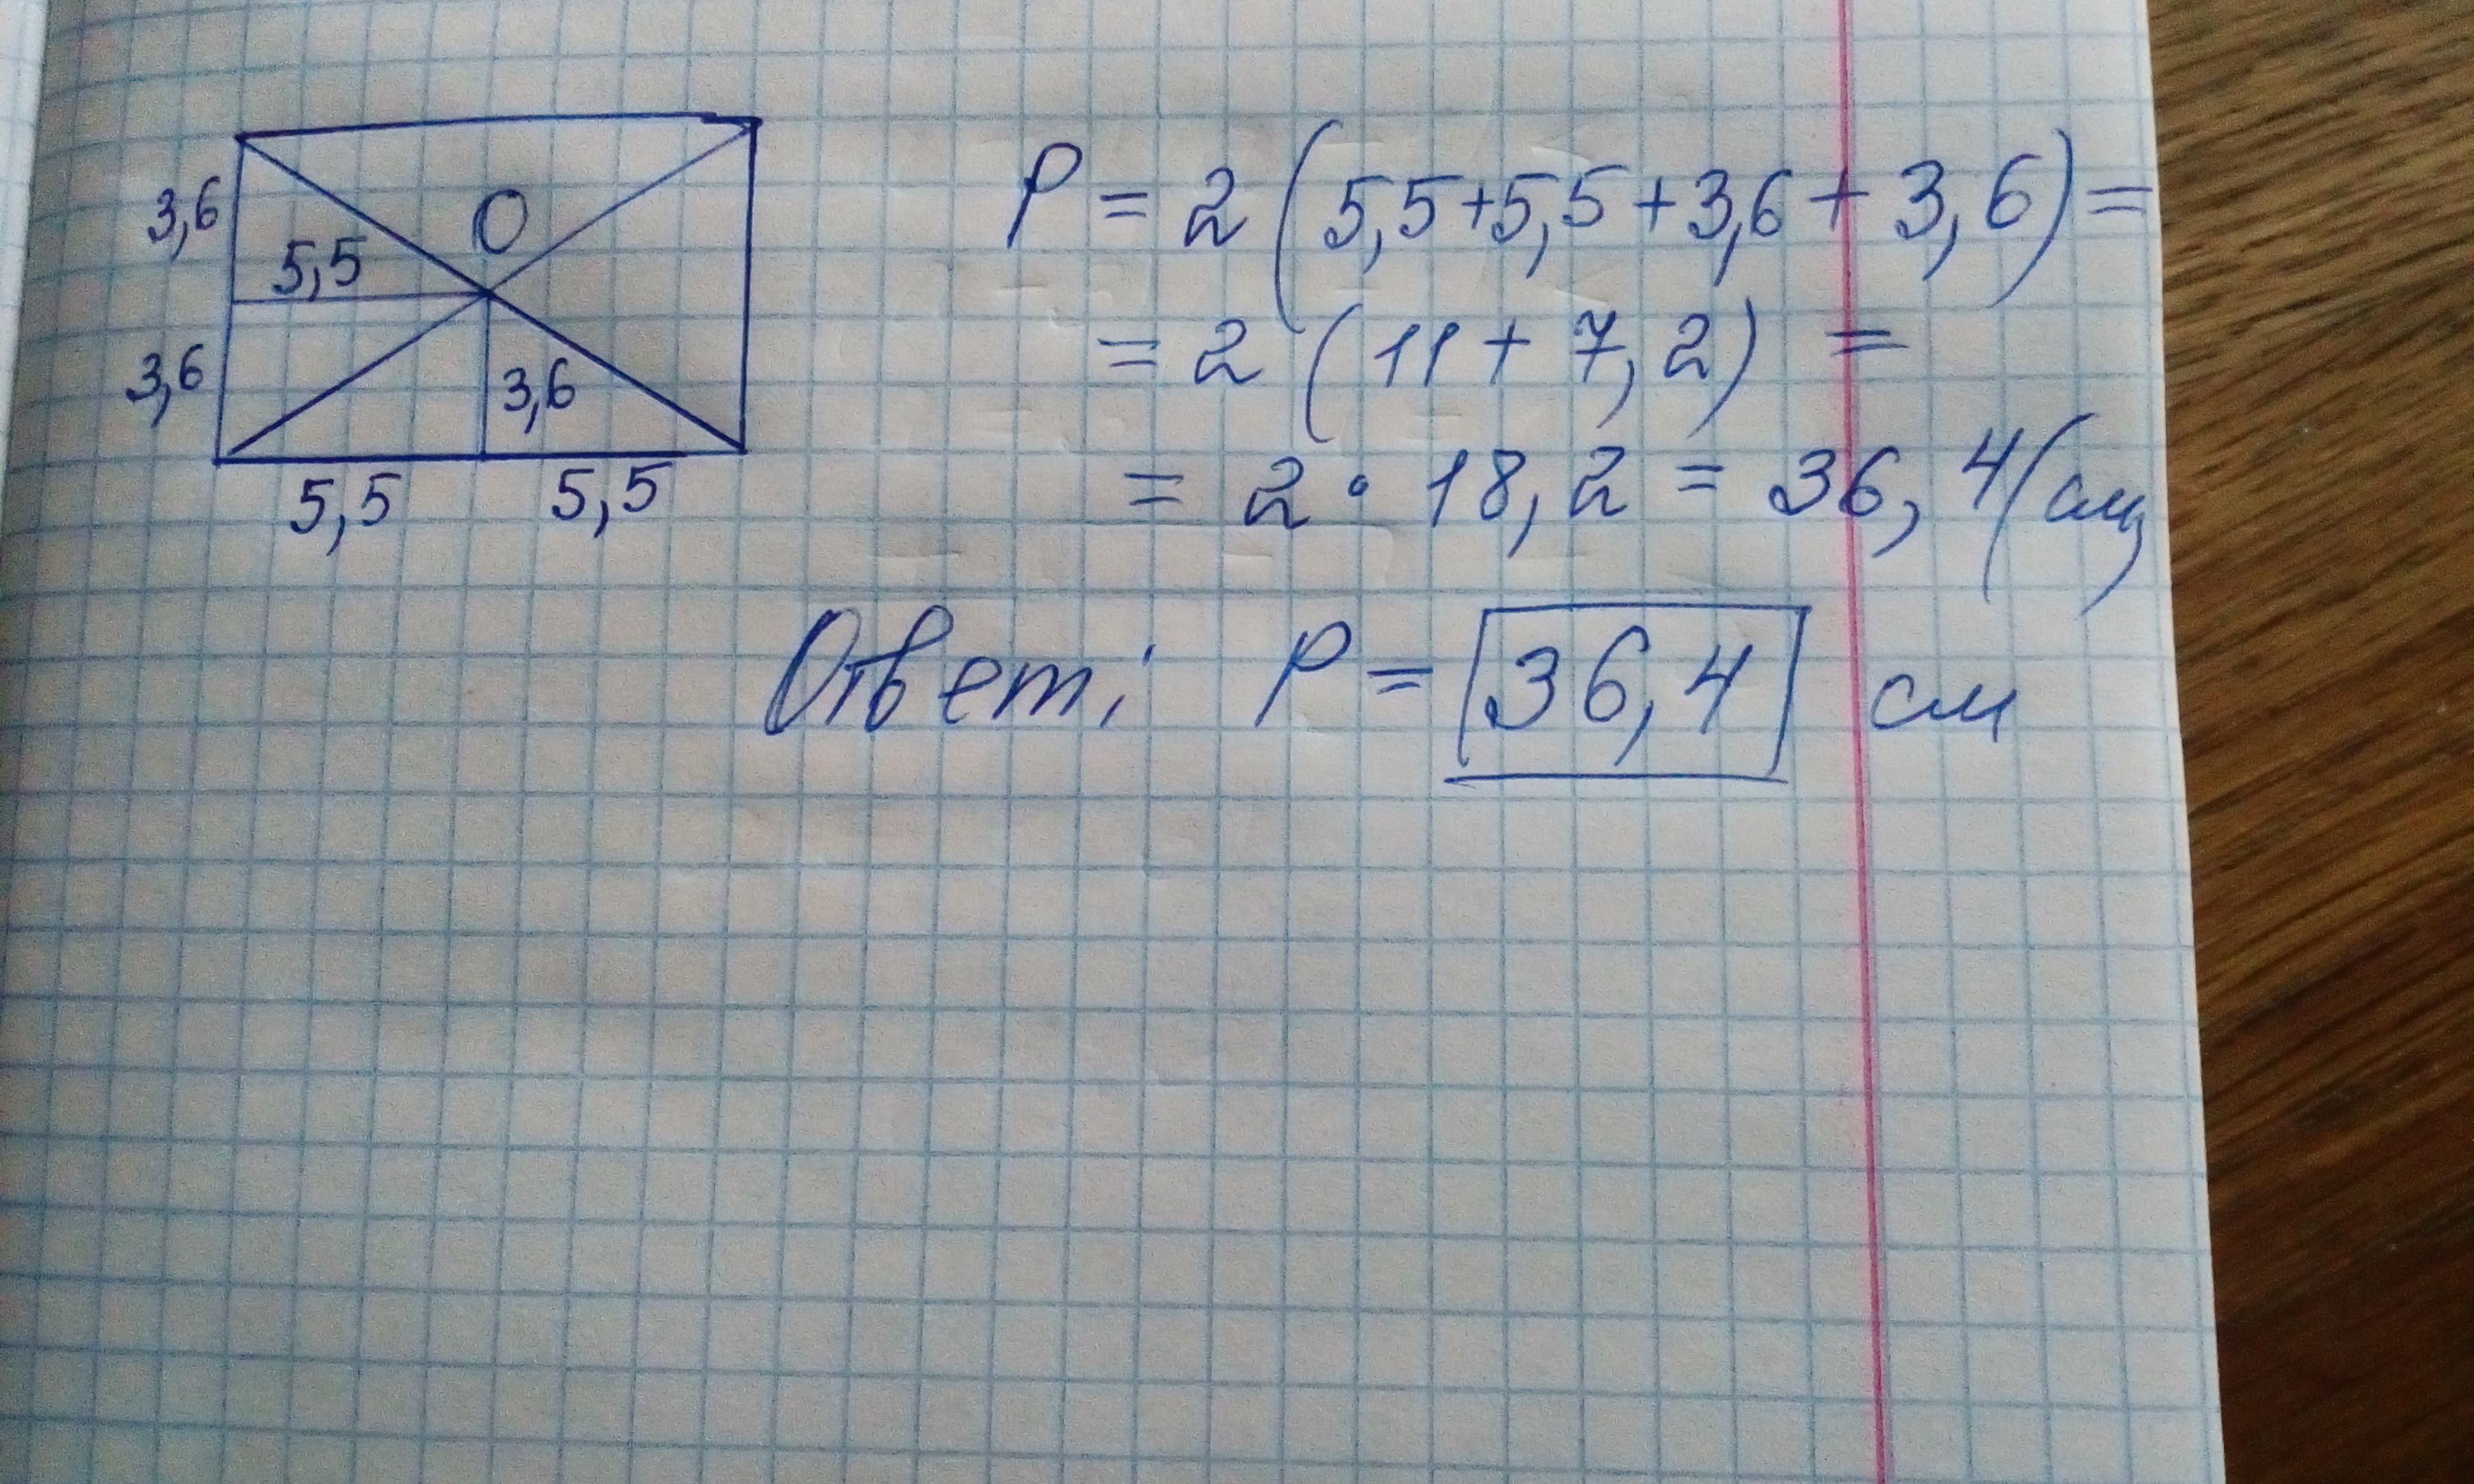 3,6
5,5
O
3,6
3,6
5,5
5,5
P = 2(5,5+5,5+3,6+3,6)=
= 2(11+7,2) =
= 2·18,2 = 36,4(см)
Ответ: P = 36,4 см